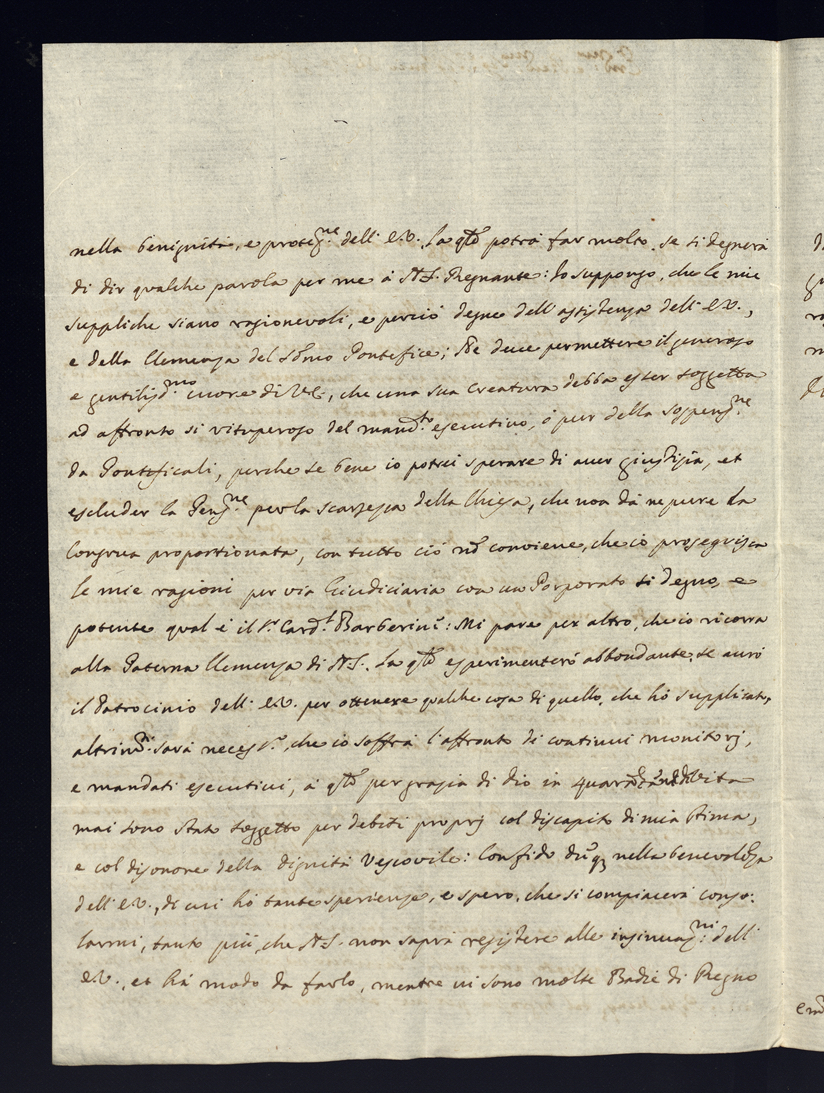 nella benignità, e protez.ne dell' E.V. la q.le potrà far molto, se si degnerà
di dir qualche parola per me à N.S. Regnante: Io suppongo, che le mie
suppliche siano ragionevoli, e perciò degne dell'assistenza dell' E.V.,
e della Clemenza del S.mo Pontefice; Ne deve permettere il generoso
e gentiliss.mo cuore di V.E., che una sua Creatura debba esser soggetta
ad affronto si vituperoso del mand.to esecutivo, ò pur della sospens.ne
da Pontificali, perche se bene io potrei sperare di aver giustizia, et
escluder la Pens.ne per la scarsezza della Chiesa, che non dà ne pure la
Congrua proportionata, con tutto ciò nõ conviene, che io proseguisca
le mie ragioni per via Giudiciaria con un Porporato si degno, e
potente qual è il S.r Card.l Barberini: Mi pare per altro, che io ricorra
alla Paterna Clemenza di N.S. la q.le esperimenterò abbondante, se aurò
il Patrocinio dell' E.V. per ottenere qualche cosa di quello, che hò supplicato,
altrim.ti sarà necess.o, che io soffra l'affronto di continui monitorj,
e mandati esecutivi, à q.li per grazia di Dio in
mai sono stato soggetto per debiti proprj col discapito di mia stima,
e col disonore della dignità Vescovile: Confido dũq3 nella benevolẽza
dell' E.V., di cui hò tante sperienze, e spero, che si compiacerà conso:
larmi, tanto più, che N.S. non saprà resistere alle insinuaz.ni dell'
E.V., et hà modo da farlo, mentre vi sono molte Badie di Regno